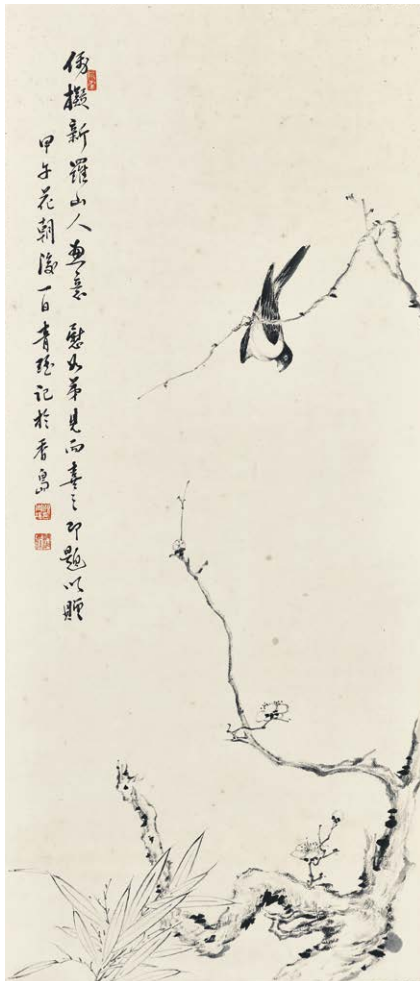 偶擬新羅山人画意 慰弟見而喜之即題以贈
甲午花朝後一日青瑤記於香島